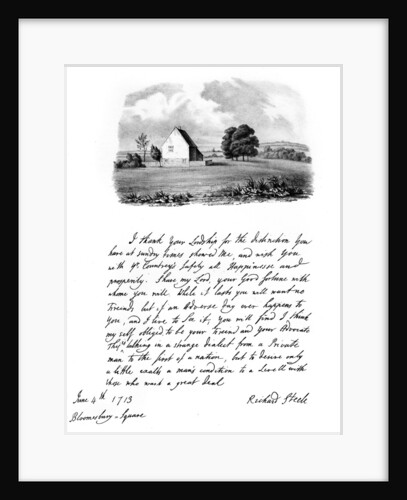 I thank Your Lordship for the Distinction You
have at sundry times showed Me, and wish You
with Yr Countrey's Safety all Happinesse and
prosperity. Share my Lord, your Good fortune with
whome You will while it lasts you will want no
friends but if an adverse Day ever happens to
You, and I live to see it, You will find I think
my self obliged to be your friend and Your Advocate
This is talking in a strange dialect from a Private
man to the first of a nation, but to desire only
a little exalts a man's condition to a Levell with
those who want a great deal
June 4th 1713
Richard Steele
Bloomesbury-Square